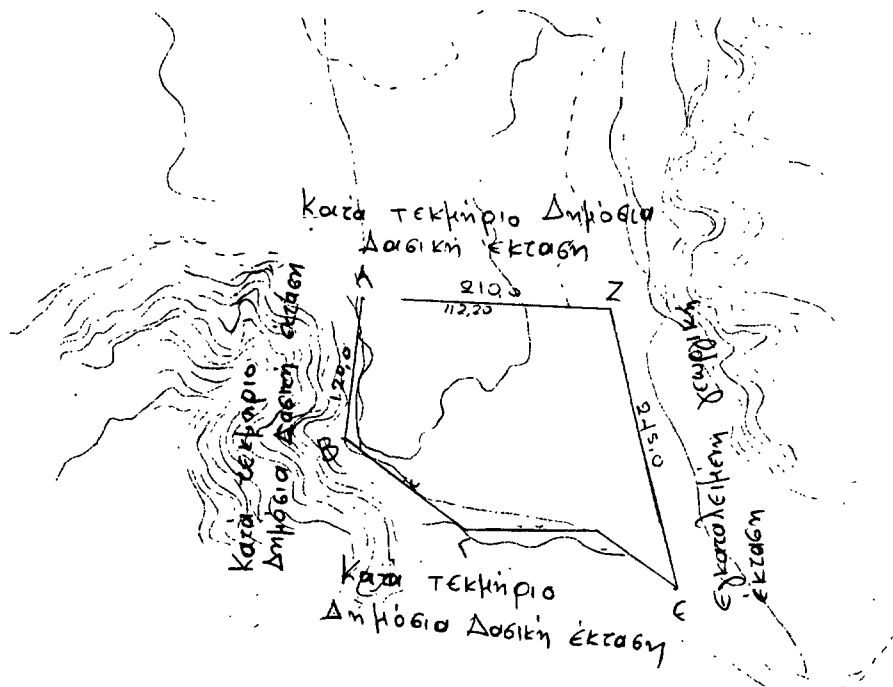 Κατά τεκμήριο Δημόσια
Δασική έκταση
Α
210,0
112,20
Ζ
120,0
Β
Κατά τεκμήριο
Δημόσια Δασική έκταση
245,0
Εγκαταλειμένη γεωργική
έκταση
Γ
Ε
Κατά τεκμήριο
Δημόσια Δασική έκταση